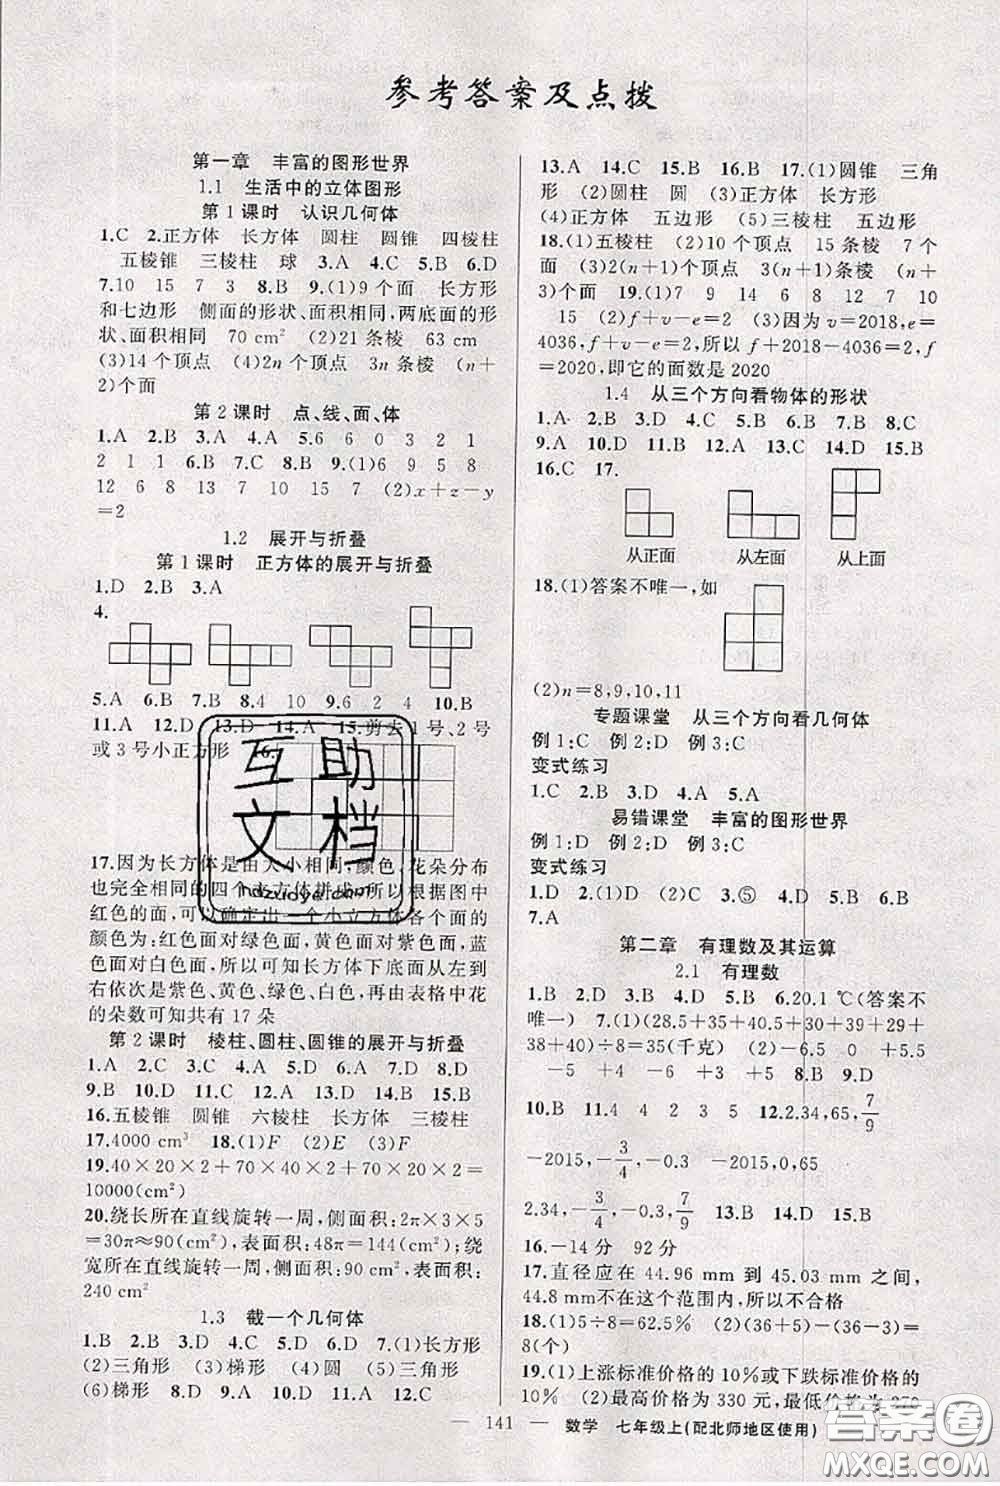 参考答案及点拨
第一章　丰富的图形世界
1.1　生活中的立体图形
第1课时　认识几何体
1.C　2.正方体　长方体　圆柱　圆锥　四棱柱
五棱锥　三棱柱　球　3.A　4.C　5.B　6.D
7.10　15　7　3　8.B　9.(1)9个面　长方形
和七边形　侧面的形状、面积相同,两底面的形
状、面积相同　70 cm²　(2)21条棱　63 cm
(3)14个顶点　(4)2n个顶点　3n条棱　(n+
2)个面
第2课时　点、线、面、体
1.A　2.B　3.A　4.A　5.6　6　0　3　2　1
2　1　1　6.B　7.B　8.C　9.(1)6　9　5　8
12　6　8　13　7　10　15　7　(2)x+z-y
=2
1.2　展开与折叠
第1课时　正方体的展开与折叠
1.D　2.B　3.A
4.
5.A　6.B　7.B　8.4　10　9.6　2　4　10.B
11.A　12.D　13.D　14.A　15.剪去1号、2号
或3号小正方形　16.
17.因为长方体是由大小相同,颜色、花朵分布
也完全相同的四个立方体拼成,所以根据图中
红色的面,可以确定出一个小立方体各个面的
颜色为:红色面对绿色面,黄色面对紫色面,蓝
色面对白色面,所以可知长方体下底面从左到
右依次是紫色、黄色、绿色、白色,再由表格中花
的朵数可知共有17朵
第2课时　棱柱、圆柱、圆锥的展开与折叠
1.A　2.C　3.C　4.B　5.D　6.D　7.D　8.D
9.B　10.D　11.C　12.B　13.B　14.B　15.B
16.五棱锥　圆锥　六棱柱　长方体　三棱柱
17.4000 cm³　18.(1)F　(2)E　(3)F
19.40×20×2+70×40×2+70×20×2=
10000(cm²)
20.绕长所在直线旋转一周,侧面积:2π×3×5
=30π≈90(cm²);表面积:48π=144(cm²);绕
宽所在直线旋转一周,侧面积:90 cm²,表面积:
240 cm²
1.3　截一个几何体
1.B　2.B　3.D　4.C　5.D　6.D　7.(1)长方形
(2)三角形　(3)梯形　(4)圆　(5)三角形
(6)梯形　8.D　9.B　10.A　11.A　12.C
13.A　14.C　15.B　16.B　17.(1)圆锥　三角
形　(2)圆柱　圆　(3)正方体　长方形
(4)正方体　五边形　(5)三棱柱　五边形
18.(1)五棱柱　(2)10个顶点　15条棱　7个
面　(3)2(n+1)个顶点　3(n+1)条棱　(n+
3)个面　19.(1)7　9　14　6　8　12　7　10
15　(2)f+v-e=2　(3)因为v=2018,e=
4036,f+v-e=2,所以f+2018-4036=2,f
=2020,即它的面数是2020
1.4　从三个方向看物体的形状
1.A　2.B　3.D　4.C　5.B　6.D　7.B　8.C
9.A　10.D　11.B　12.D　13.C　14.D　15.B
16.C　17.
从正面　从左面　从上面
18.(1)答案不唯一,如
(2)n=8,9,10,11
专题课堂　从三个方向看几何体
例1:C　例2:D　例3:C
变式练习
1.C　2.B　3.D　4.A　5.A
易错课堂　丰富的图形世界
例1:D　例2:D　例3:C
变式练习
1.D　2.(1)D　(2)C　3.⑤　4.A　5.C　6.B
7.A
第二章　有理数及其运算
2.1　有理数
1.B　2.D　3.D　4.D　5.B　6.20.1 ℃(答案不
唯一)　7.(1)(28.5+35+40.5+30+39+29+
38+40)÷8=35(千克)　(2)-6.5　0　+5.5
-5　+4　-6　+3　+5　8.B　9.D
10.B　11.4　4　2　5　3　12.2.34,65,7/9
-2015,-3/4,-0.3　-2015,0,65
2.34,-3/4,-0.3,7/9　13.B　14.D　15.B
16.-14分　92分
17.直径应在44.96 mm到45.03 mm之间,
44.8 mm不在这个范围内,所以不合格
18.(1)5÷8=62.5%　(2)(36-5)-(36-3)=
8(个)
19.(1)上涨标准价格的10%或下跌标准价格的
10%　(2)最高价格为330元,最低价格为270
— 141 —　数学　七年级上(配北师地区使用)
互助
文档
hdzuoye.com
答案圈
MXQE.COM